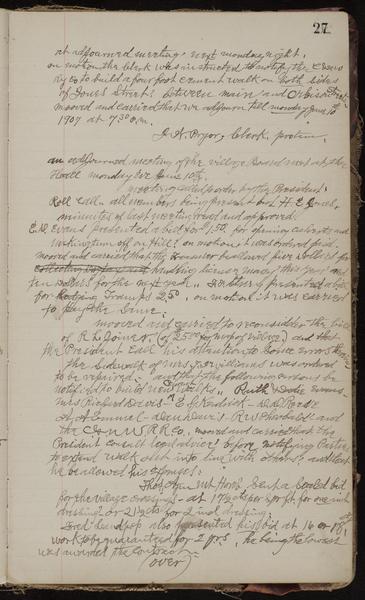 27
at adjourned meeting next monday night.
on motion the Clerk was instructed to notify the
Ry Co to build a four foot cement walk on both sides
of Jones Street between main and Street
moved and carried that we adjourn till monday June 10th
1907 at 7 30 P.m.
J. A. Pryor, Clerk, protem.
an adjourned meeting of the village Board met at the
Hall monday Eve June 10th.
meeting called order by the President.
Roll Call - all members being present but H. E. Jones.
minutes of last meeting read and approved.
Evans presented a bill for 1.50 for opening culverts and
on Hill on motion it was ordered paid.
moved and carried that the be allowed five dollars for
handling license money this year and
ten dollars for the next year. presented a bill
for Tramps 2 50, on motion it was carried
to pay the same.
moved and carried to reconsider the bill
of R. L. Jones, (of 25 00 for map of village) and that
the President call his attention to some errors there
the Sidewalk of Mrs was ordered
to be repaired. and that the following persons be
notified to build new walk. Ruth & Dove Evans -
Mrs Richard Davis - C. G. -
- Dave Davis - R. W. and
the C & N W R R Co. moved and carried that the
President consult legal advice before notifying
to extend walk out into line with others and that
he be allowed his expenses.
of Mt Horeb Sent a Sealed bid
for the village crossings - at 17 cts per sq ft for one inch
dressing or 21 cts for 2 inch dressing.
also presented his bid at 16 or 18 cts
work to be guaranteed for 2 yrs. he being the lowest
was awarded the Contract.
(over)